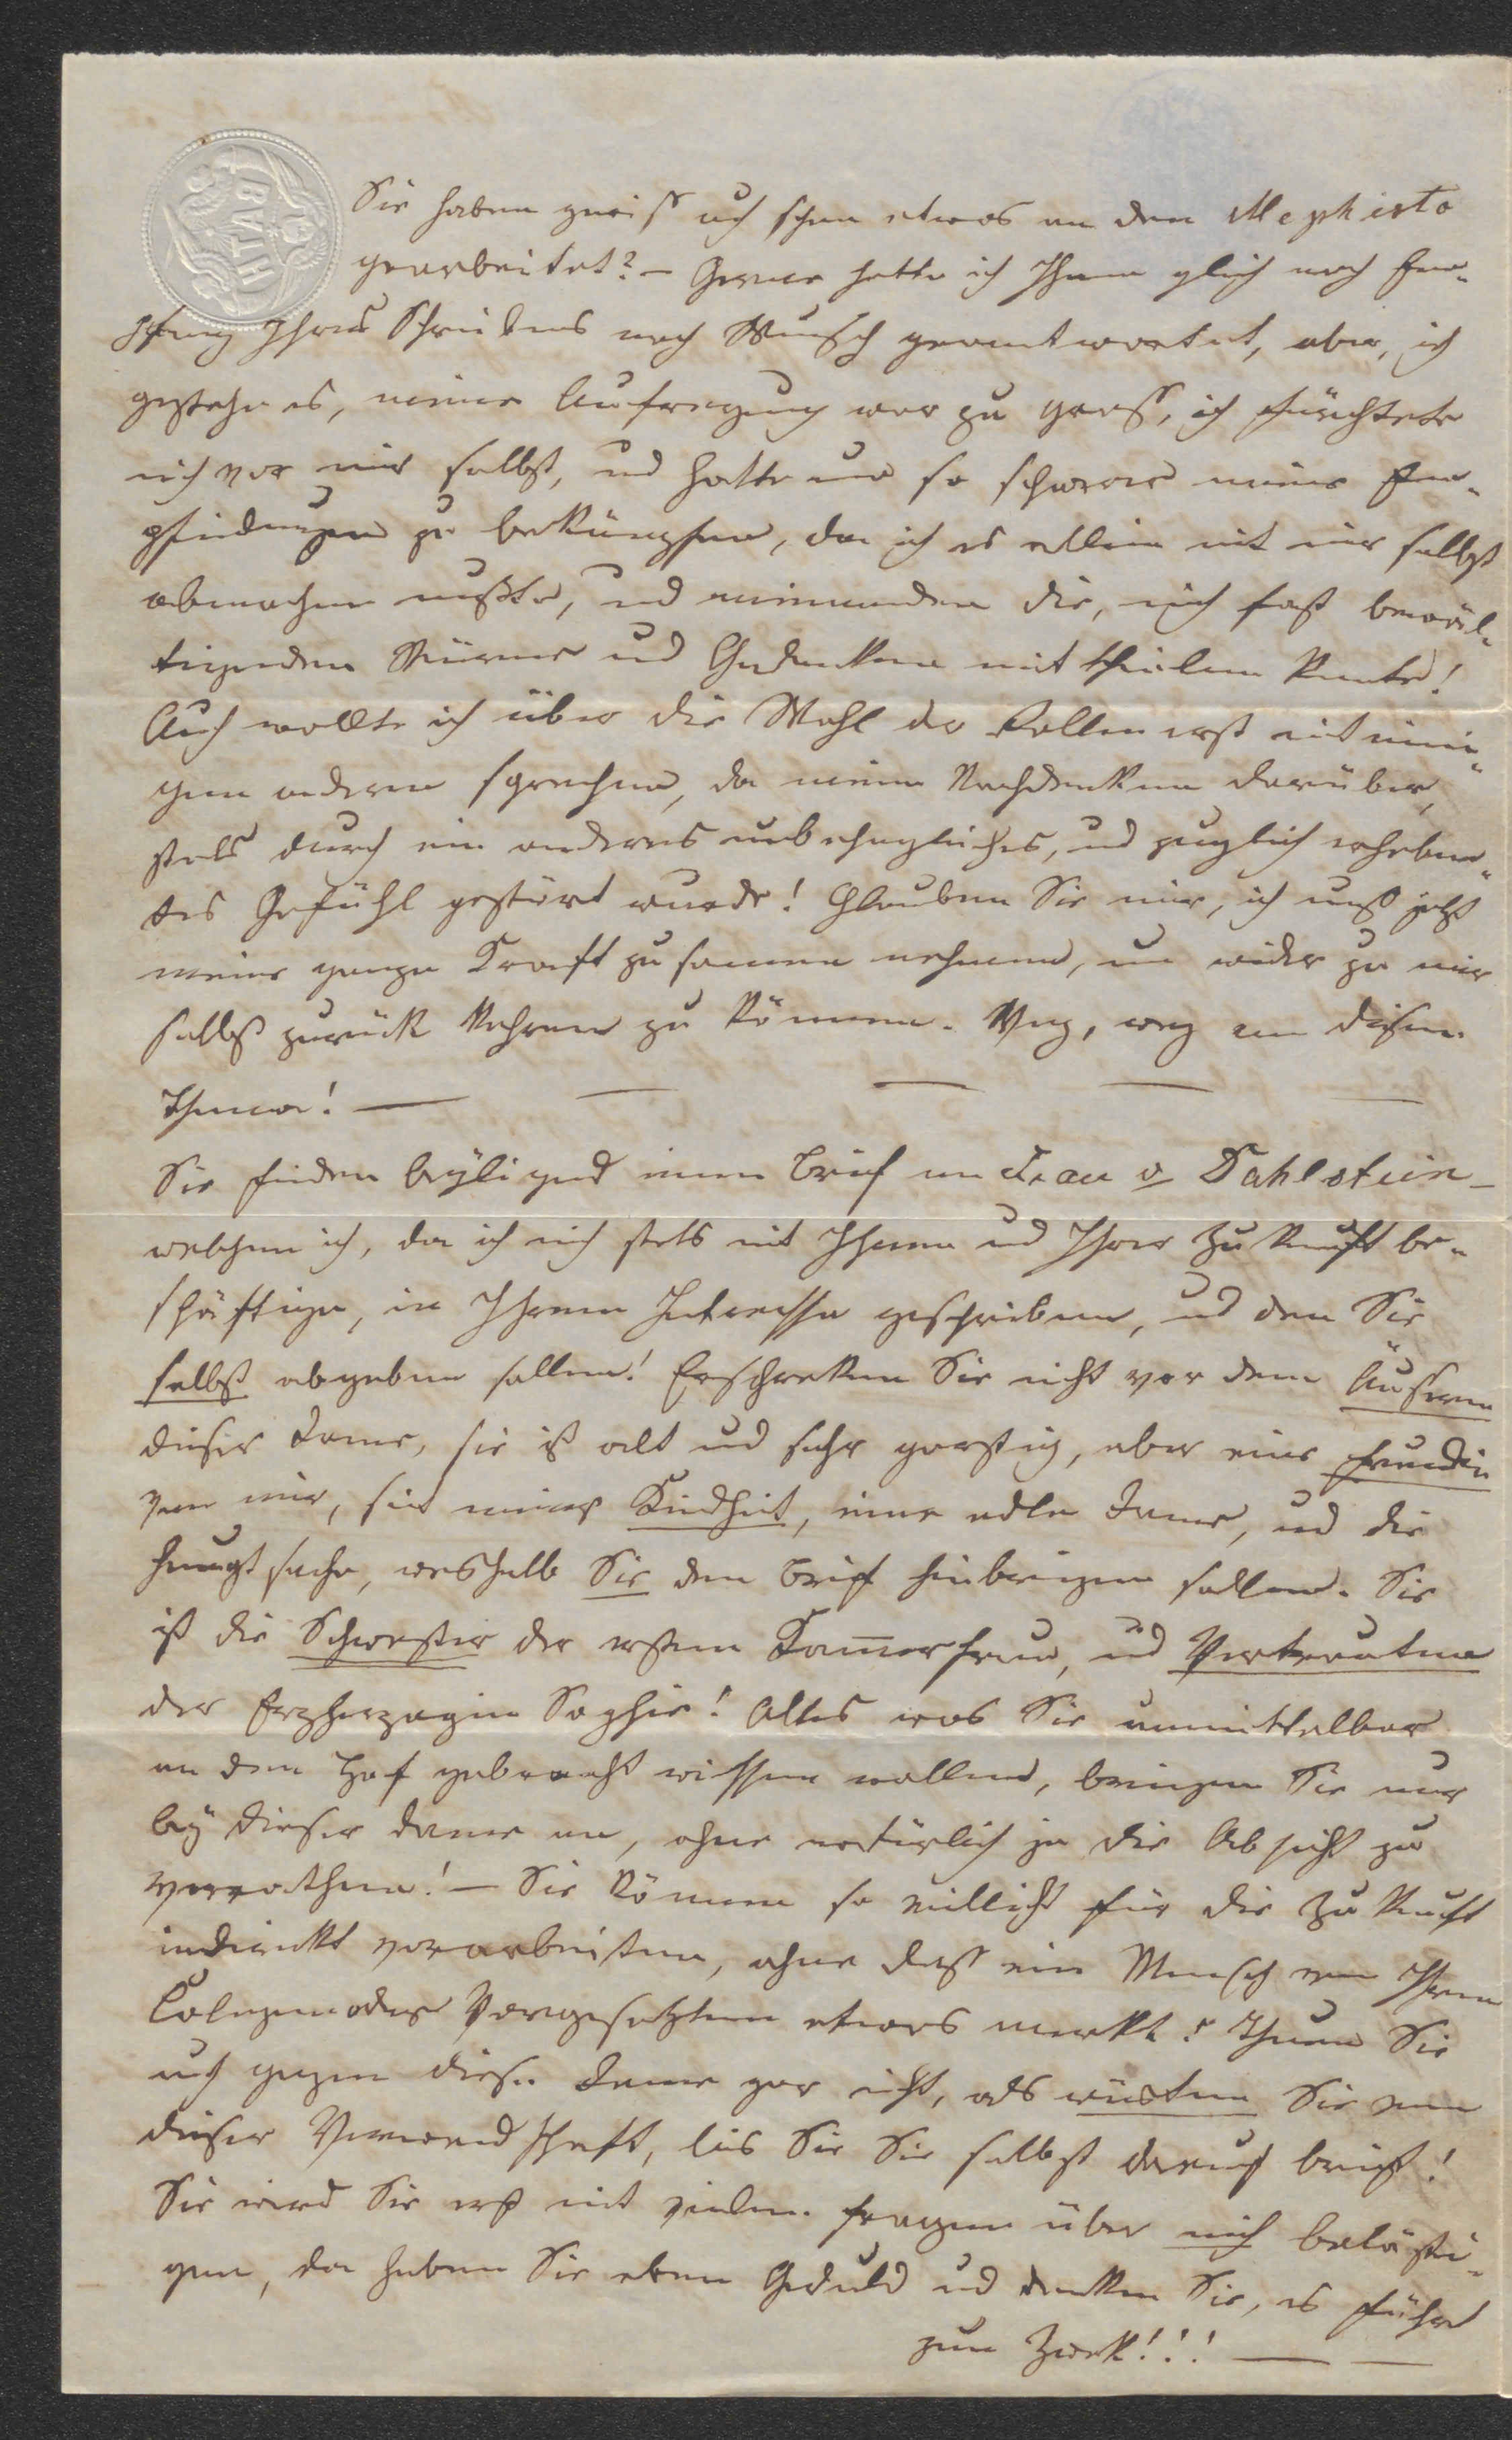 BATH
Sie haben gewiß auch schon etwas an dem Mephisto
gearbeitet? – Gerne hätte ich Ihnen gleich nach Em-
pfang Ihres Schreibens nach Wunsch geantwortet, aber, ich
gestehe es, meine Aufregung war zu groß, ich fürchtete
mich vor mir selbst, und hatte um so schwerer meine Em-
pfindungen zu bekämpfen, da ich es allein mit mir selbst
abmachen mußte, und niemanden die, mich fast bewäl-
tigenden Stürme und Gedanken mittheilen konnte!
Auch wollte ich über die Wahl der Rollen erst mit eini-
gen anderen sprechen, da meine Nachdenken darüber,
stets durch ein anderes unbehagliches, und zugleich erheben-
des Gefühl gestört wurde! Glauben Sie mir, ich muß jetzt
meine ganze Kraft zusammen nehmen, um wieder zu mir
selbst zurück kehren zu können. Weg, weg von diesem
Thema! —
Sie finden beyliegend einen Brief an Frau v Dahlstein –
welchen ich, da ich mich stets mit Ihnen und Ihrer Zukunft be-
schäftige, in Ihrem Interesse geschrieben, und den Sie
selbst abgeben sollen! Erschrecken Sie nicht vor dem Äußeren
dieser Dame, sie ist alt und sehr garstig, aber eine Freundin
von mir, seit meiner Kindheit, eine edle Dame, und die
Hauptsache, weshalb Sie den Brief hinbringen sollen. Sie
ist die Schwester der ersten Kam̅erfrau, und Vertrauten
der Erzherzogin Sophie! Alles was Sie unmittelbar
an den Hof gebracht wissen wollen, bringen Sie nur
bey dieser Dame an, ohne natürlich je die Absicht zu
verrathen! – Sie können so vielleicht für die Zukunft
indirekt vorarbeiten, ohne daß ein Mensch von Ihren
Collegen oder Vorgesetzten etwas merkt! Thuen Sie
auch gegen diese Dame gar nicht, als wüsten Sie von
dieser Verwandschaft, bis Sie Sie selbst darauf bringt!
Sie wird Sie erst mit vielen Fragen über mich belästi-
gen, da haben Sie eben Geduld und denken Sie, es führt
zum Zweck!!! —